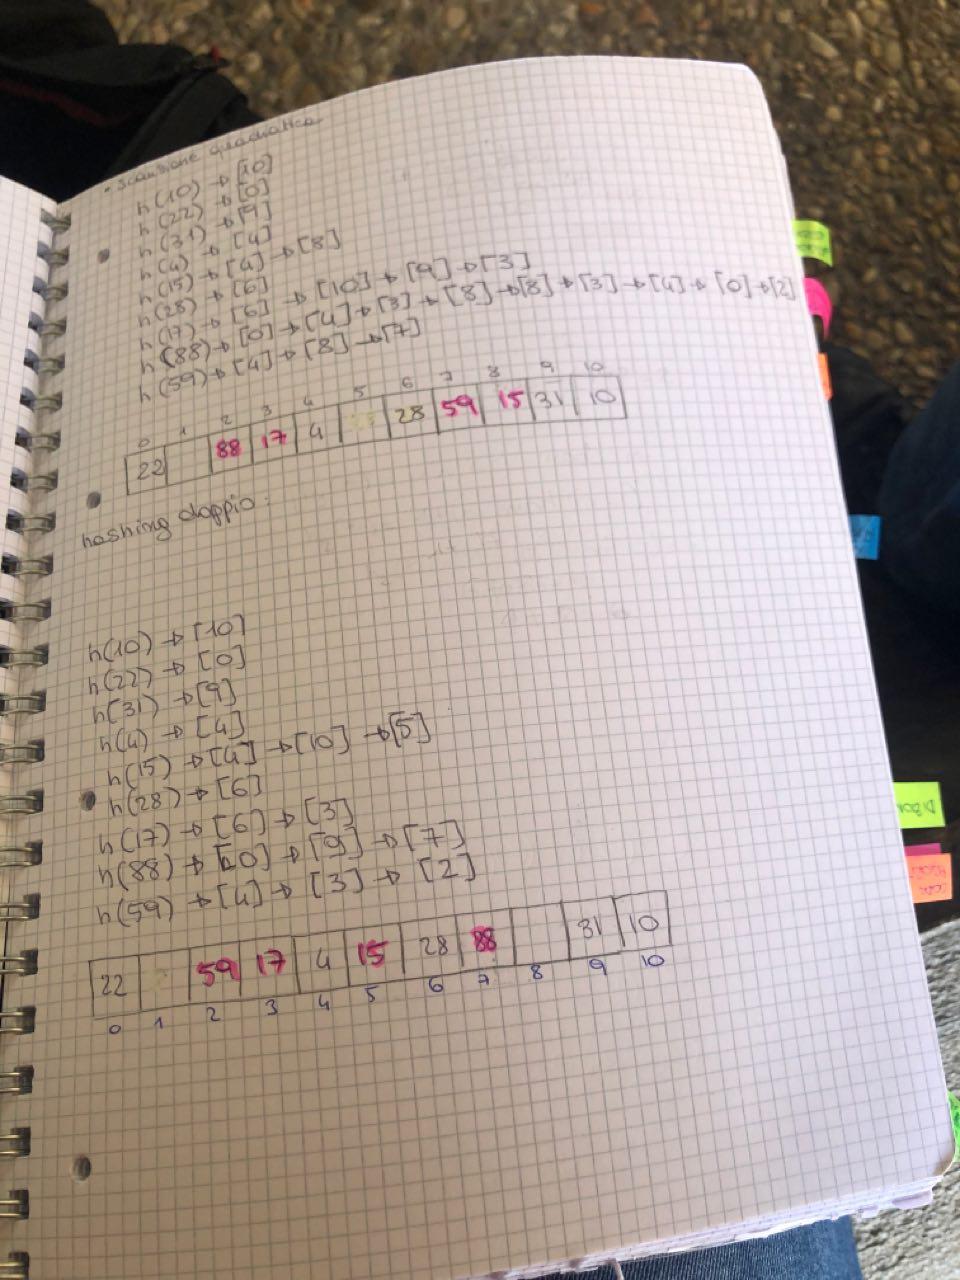 • scansione quadratica
h(10) → [10]
h(22) → [0]
h(31) → [9]
h(4) → [4]
h(15) → [4] → [8]
h(28) → [6]
h(17) → [6] → [10] → [9] → [3]
h(88) → [0] → [4] → [3] → [8] → [8] → [3] → [4] → [0] → [2]
h(59) → [4] → [8] → [7]
0 1 2 3 4 5 6 7 8 9 10
22 88 17 4 28 59 15 31 10
hashing doppio:
h(10) → [10]
h(22) → [0]
h(31) → [9]
h(4) → [4]
h(15) → [4] → [10] → [5]
h(28) → [6]
h(17) → [6] → [3]
h(88) → [0] → [9] → [7]
h(59) → [4] → [3] → [2]
22 59 17 4 15 28 88 31 10
0 1 2 3 4 5 6 7 8 9 10